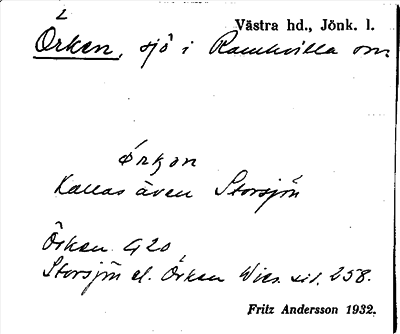 Västra hd., Jönk. l.
Örken, sjö i Ramkvilla sn.
Örkən
kallas även Storsjön
Örken G20
Storsjön el. Örken Wies. sid. 258.
Fritz Andersson 1932.